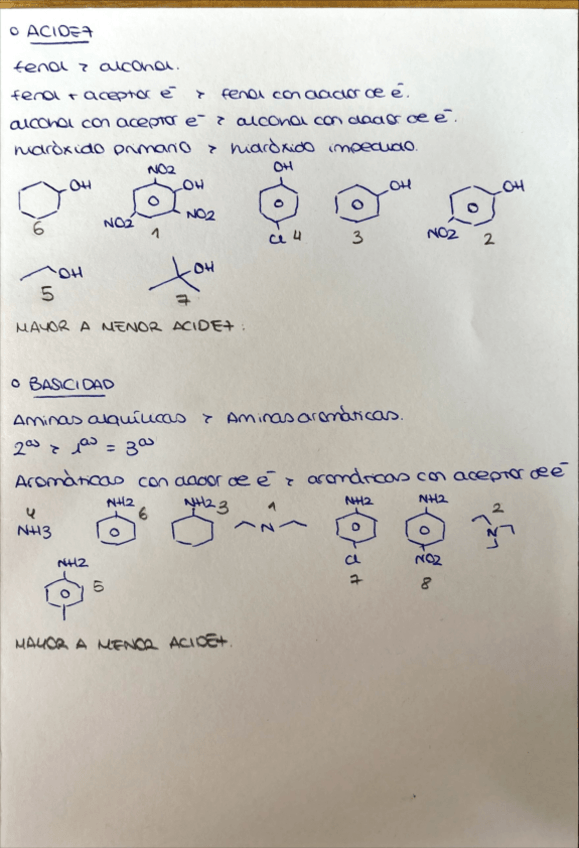 o ACIDEZ
fenol > alcohol.
fenol + aceptor e⁻ > fenol con dador de e⁻.
alcohol con aceptor e⁻ > alcohol con dador de e⁻.
hidróxido primario > hidróxido impedido.
OH 6
NO2 OH NO2 NO2 1
OH Cl 4
OH 3
OH NO2 2
OH 5
OH 7
MAYOR A MENOR ACIDEZ:
o BASICIDAD
Aminas alquílicas > Aminas aromáticas.
2ᵃˢ > 1ᵃˢ = 3ᵃˢ
Aromáticas con dador de e⁻ > aromáticas con aceptor de e⁻
4 NH3
NH2 6
NH2 3
1 N
NH2 Cl 7
NH2 NO2 8
2 N
NH2 5
MAYOR A MENOR ACIDEZ.